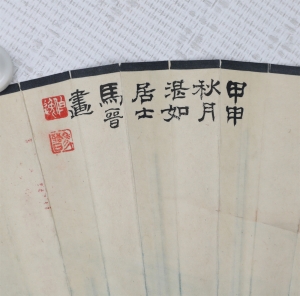 甲申
秋月
湛如
居士
馬晉
畫